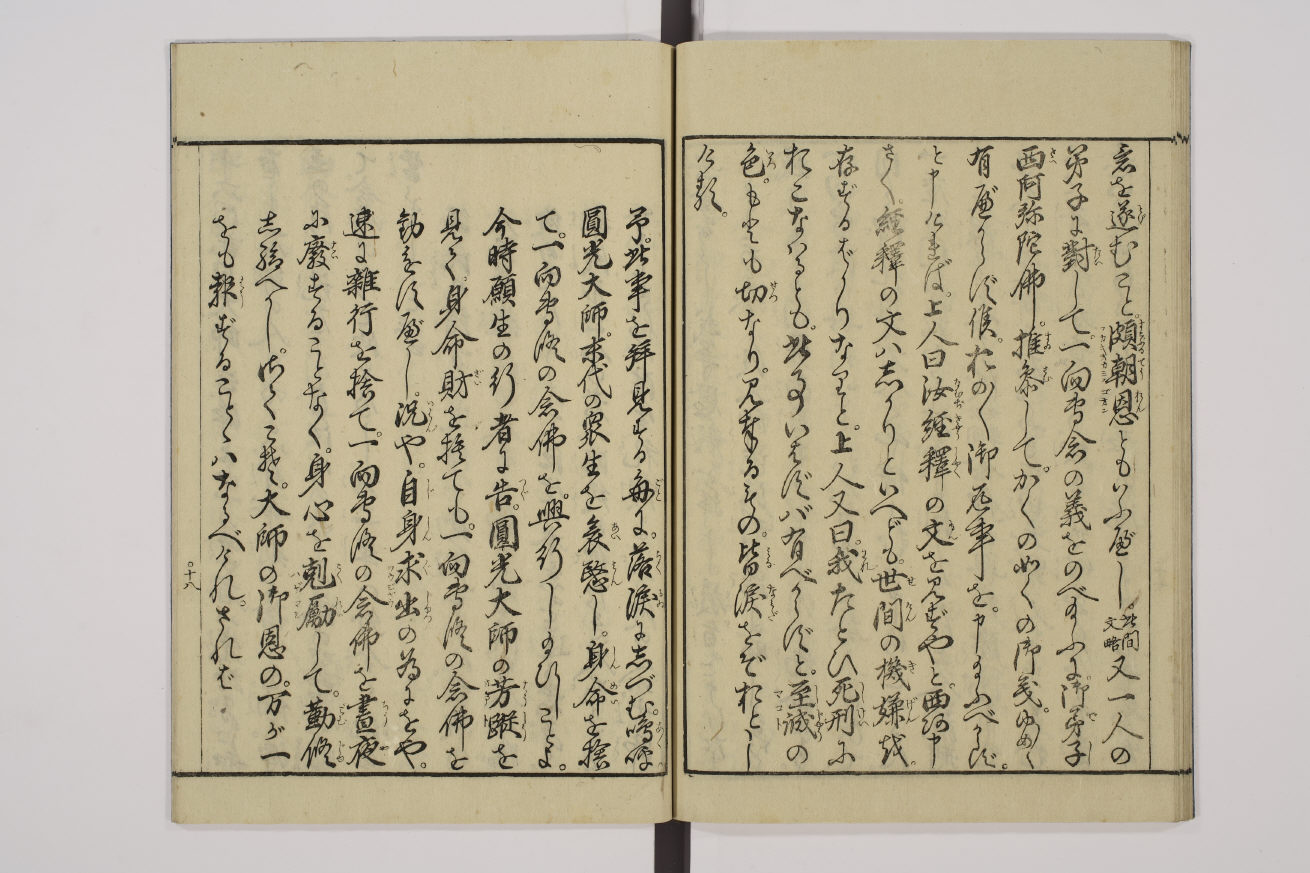 意を遂むこと。頗朝恩ともいふ匪し。此間文略又一人の
弟子に對して。一向専念の義をのべ給ふに。御弟子
西阿弥陀佛。推参して。かくの如くの御義。ゆめ〳〵
有匪からず候。おの〳〵御返事を。申給ふべからず。
と申ければ。上人曰汝經釋の文を見ずやと。西阿申
さく。經釋の文ハしかりといへども。世間の機嫌を。
存ずるばかりなりと。上人又曰。我たとひ死刑に
おこなハるとも。此事いはずバ有べからずと。至誠の
色。もとも切なり。見奉るもの。皆涙をぞおとし
ける。
予。此事を拜見する毎に。落涙にしづむ。嗚呼
圓光大師。末代の衆生を哀愍し。身命を捨
て。一向専修の念佛を。興行し給ひしことよ。
今時願生の行者に告。圓光大師の芳蹤を
見て。身命財を捨ても。一向専修の念佛を
勤む匪し。况や。自身求出の為にをや。
速に雜行を捨て。一向専修の念佛を。晝夜
に廢することなく。身心を剋勵して。勤修
し給へかし。かくこそ。大師の御恩の。万が一
をも報ずることゝハなるべけれ。されば
十八